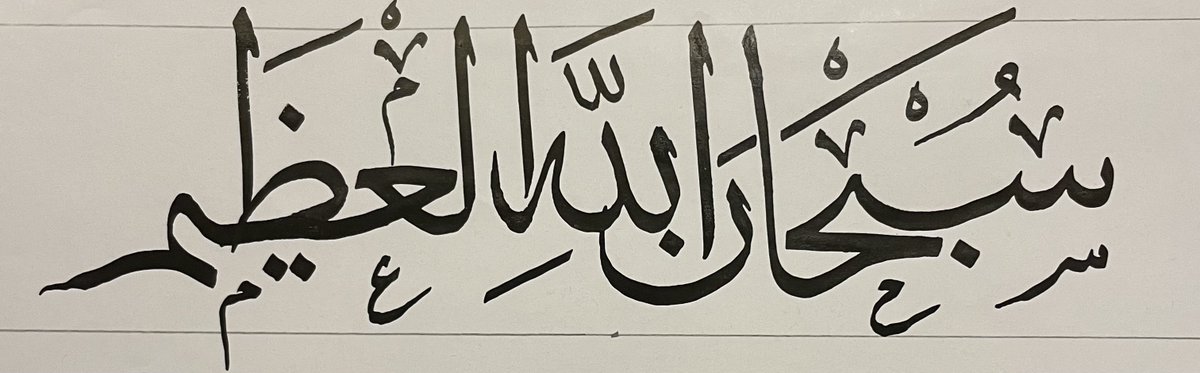 سُبْحَانَ اللَّهِ الْعَظَيم